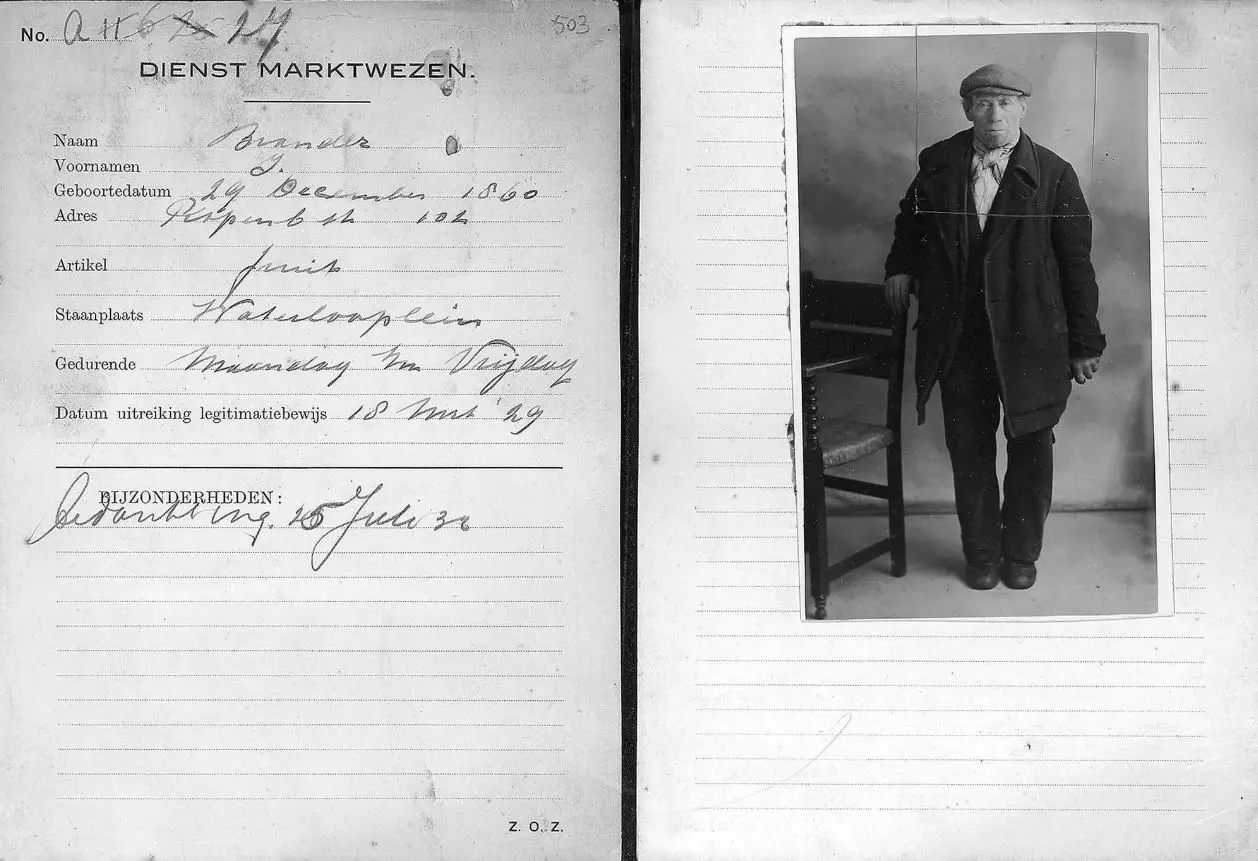 No. A 27
503
DIENST MARKTWEZEN.
Naam Brander
Voornamen J.
Geboortedatum 29 December 1860
Adres 102
Artikel fruit
Staanplaats Waterlooplein
Gedurende Maandag t/m Vrijdag
Datum uitreiking legitimatiebewijs 18 Mrt '29
BIJZONDERHEDEN:
25 Juli
Z. O. Z.